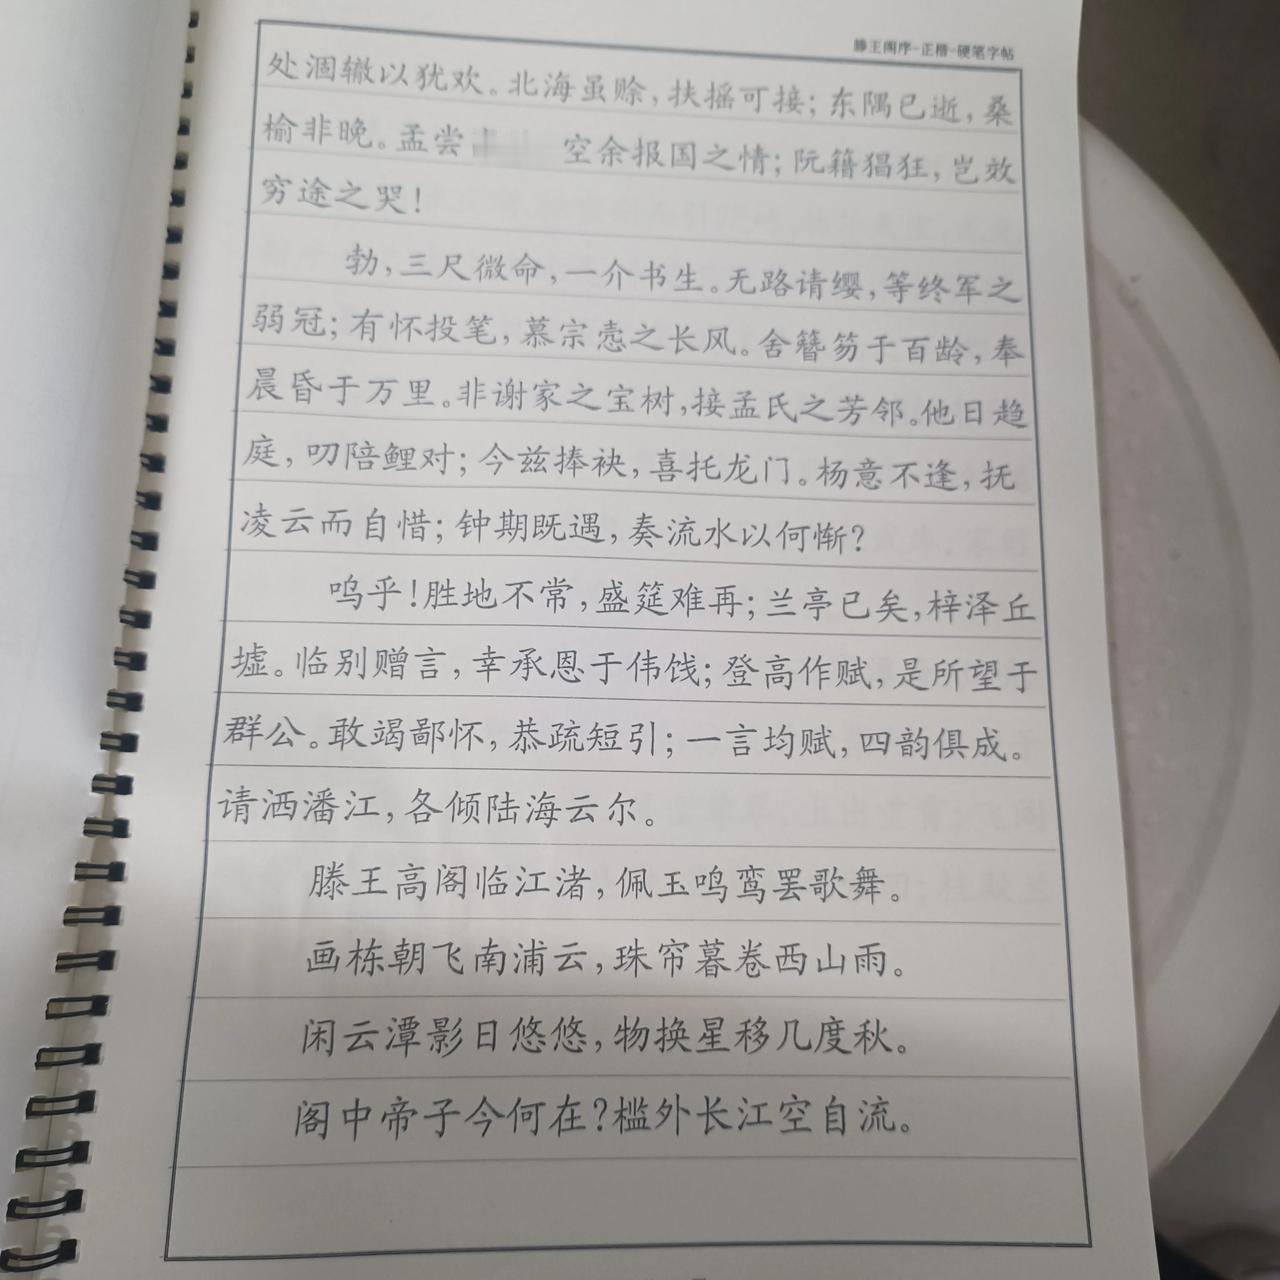 滕王阁序-正楷-硬笔字帖
处涸辙以犹欢。北海虽赊，扶摇可接；东隅已逝，桑
榆非晚。孟尝 空余报国之情；阮籍猖狂，岂效
穷途之哭！
勃，三尺微命，一介书生。无路请缨，等终军之
弱冠；有怀投笔，慕宗悫之长风。舍簪笏于百龄，奉
晨昏于万里。非谢家之宝树，接孟氏之芳邻。他日趋
庭，叨陪鲤对；今兹捧袂，喜托龙门。杨意不逢，抚
凌云而自惜；钟期既遇，奏流水以何惭？
呜乎！胜地不常，盛筵难再；兰亭已矣，梓泽丘
墟。临别赠言，幸承恩于伟饯；登高作赋，是所望于
群公。敢竭鄙怀，恭疏短引；一言均赋，四韵俱成。
请洒潘江，各倾陆海云尔。
滕王高阁临江渚，佩玉鸣鸾罢歌舞。
画栋朝飞南浦云，珠帘暮卷西山雨。
闲云潭影日悠悠，物换星移几度秋。
阁中帝子今何在？槛外长江空自流。